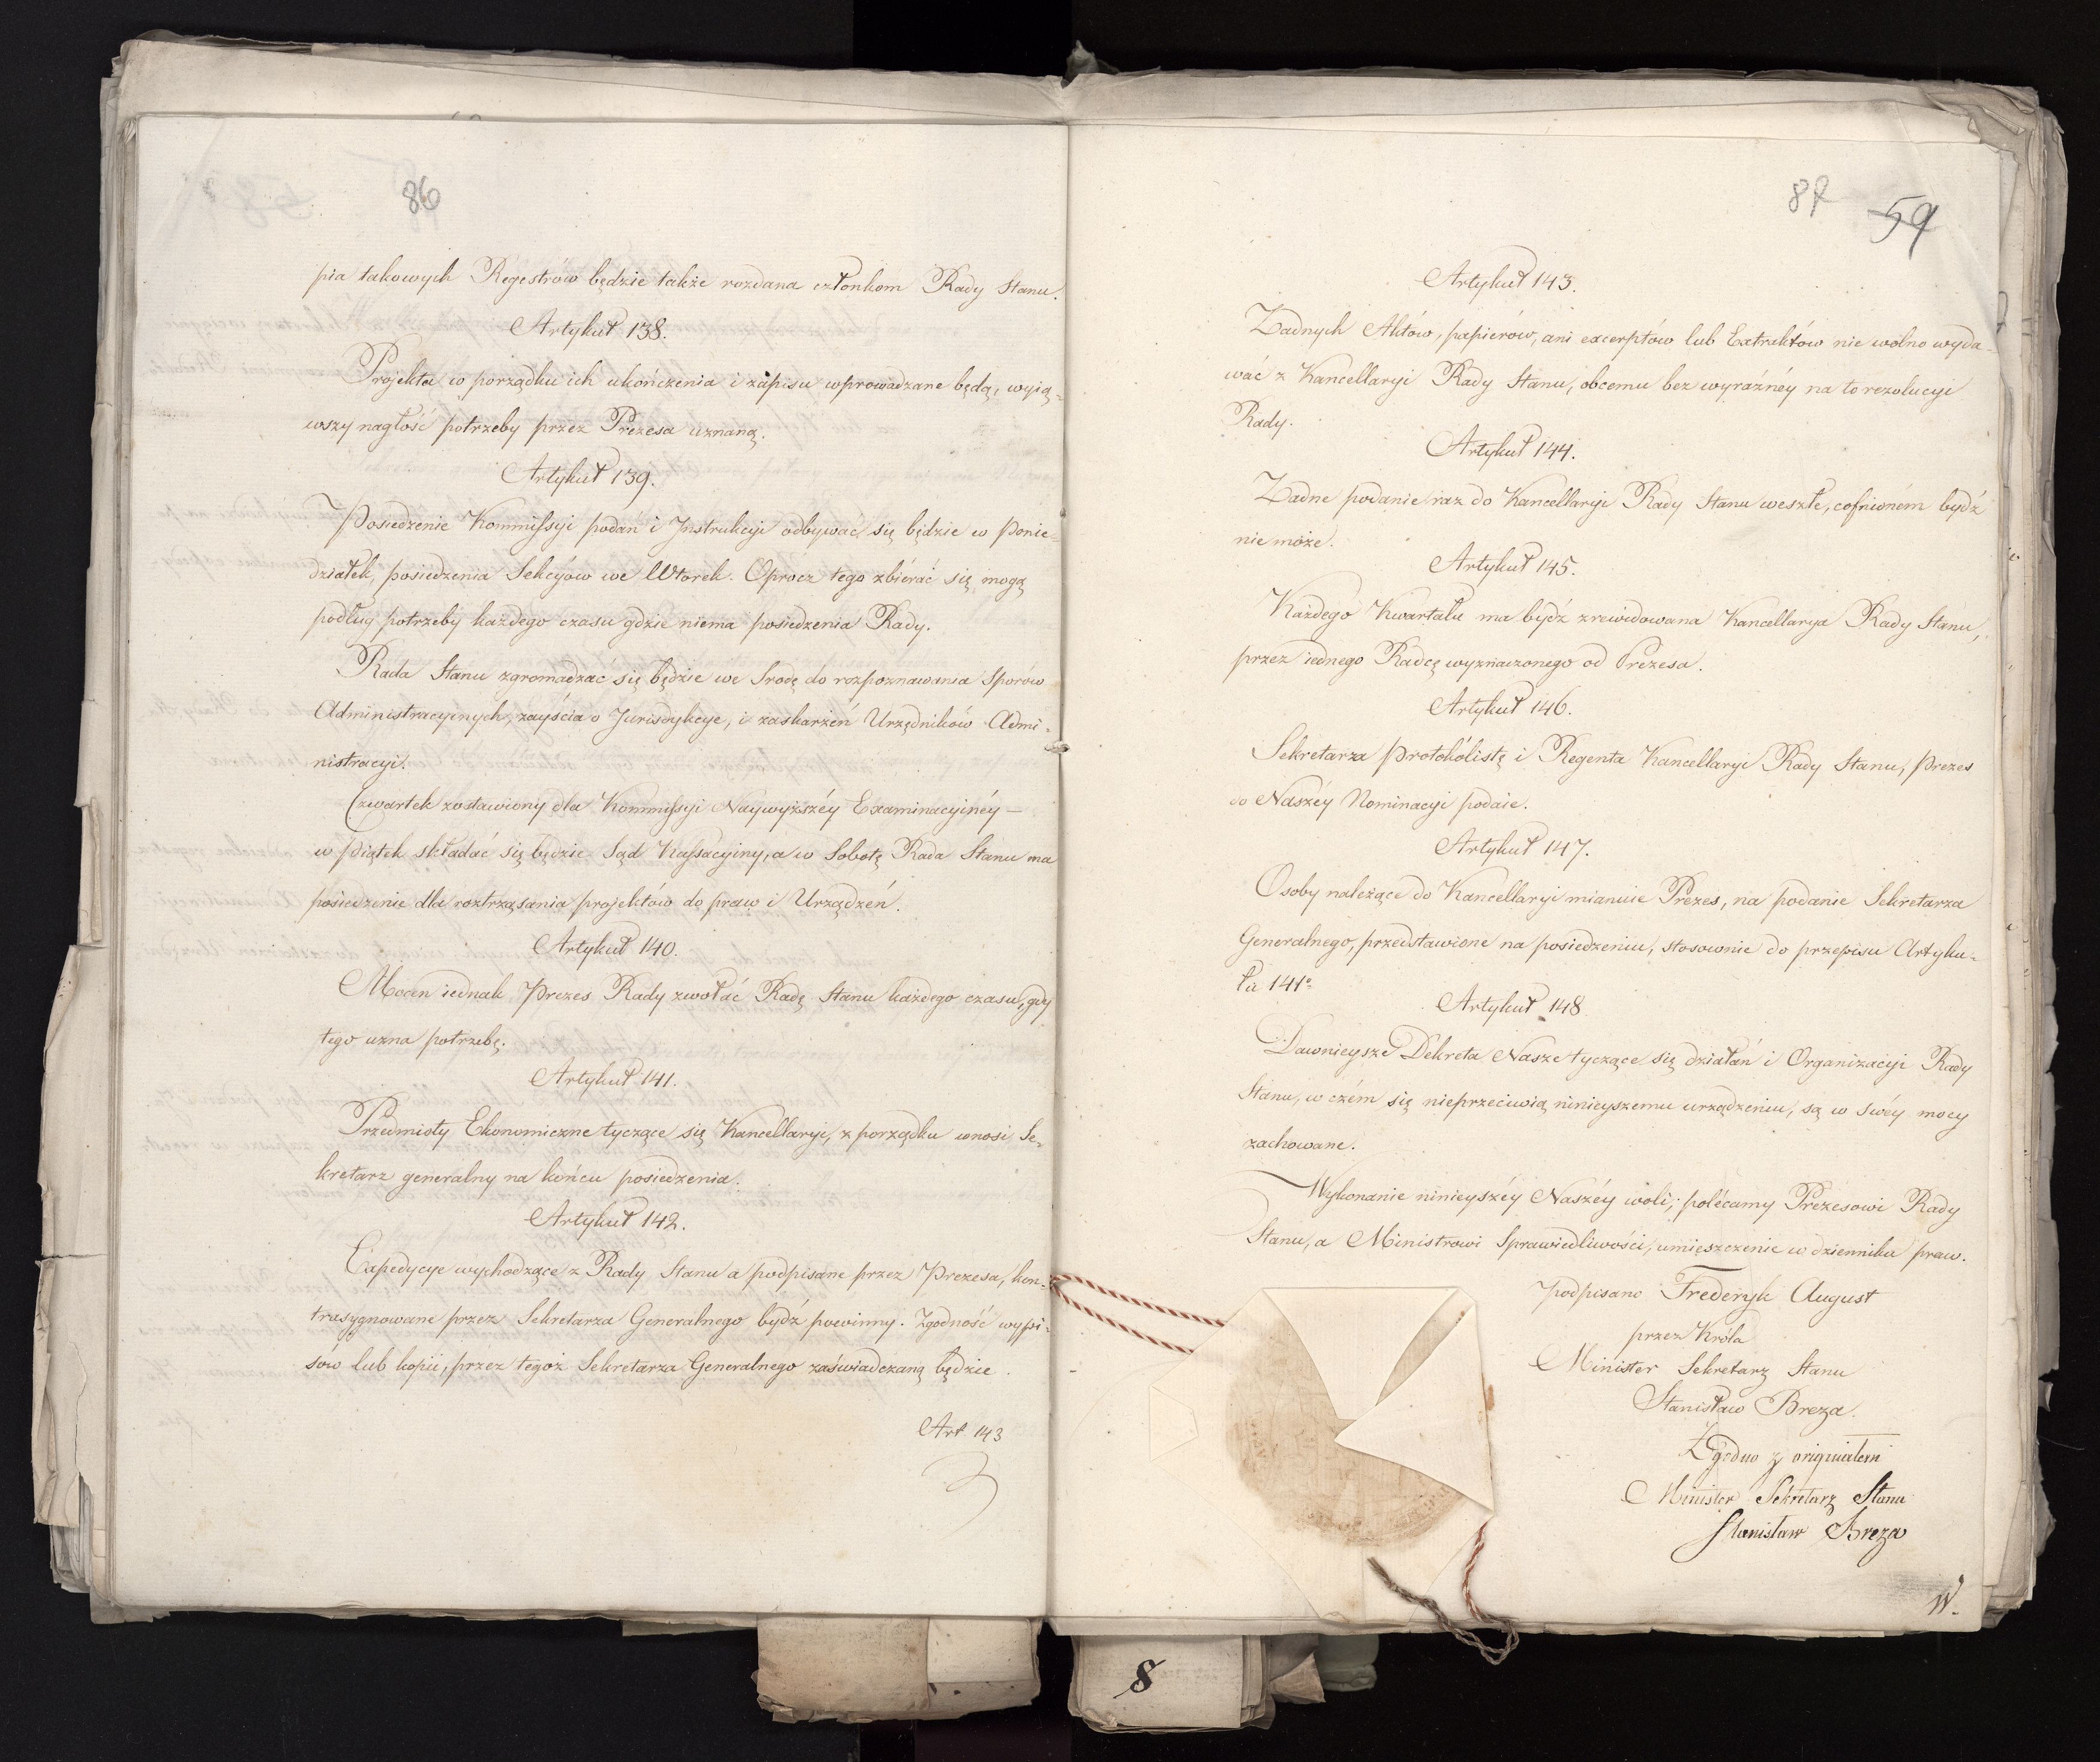 86
pia takowych Regestrów będzie także rozdana członkom Rady Stanu.
Artykuł 138.
Projekta w porządku ich ukończenia i zapisu wprowadzane będą, wyią-
wszy nagłość potrzeby przez Prezesa uznaną.
Artykuł 139.
Posiedzenie Kommissyi podań i Instrukcyi odbywać się będzie w Ponie-
działek, posiedzenia Sekcyow we Wtorek. Oprocz tego zbiérać się mogą
podług potrzeby każdego czasu gdzie niema posiedzenia Rady.
Rada Stanu zgromadzać się będzie we Srodę do rozpoznawania Sporów
Administracyinych, zayścia o Jurisdykcye, i zaskarżeń Urzędników Admi-
nistracyi.
Czwartek zostawiony dla Kommissyi Naywyższéy Examinacyinéy —
w piątek składać się będzie Sąd Kassacyiny, a w Sobotę Rada Stanu ma
posiedzenie dla roztrząsania projektów do praw i Urządzeń.
Artykuł 140.
Mocen iednak Prezes Rady zwołać Radę Stanu każdego czasu, gdy
tego uzna potrzebę.
Artykuł 141.
Przedmioty Ekonomiczne tyczące się Kancellaryi, z porządku wnosi Se-
kretarz generalny na końcu posiedzenia.
Artykuł 142.
Expedycye wychodzące z Rady Stanu a podpisane przez Prezesa, kon-
trasygnowane przez Sekretarza Generalnego bydź powinny. Zgodność wypi-
sów lub kopii, przez tegoż Sekretarza Generalnego zaświadczaną będzie.
Art 143
87 59
Artykuł 143.
Żadnych Aktów, papierów, ani excerptów lub Extraktów nie wolno wyda-
wać z Kancellaryi Rady Stanu, obcemu bez wyraźnéy na to rezolucyi
Rady.
Artykuł 144.
Żadne podanie raz do Kancellaryi Rady Stanu weszłe, cofnioném bydź
nie może.
Artykuł 145.
Każdego Kwartału ma bydź zrewidowana Kancellarya Rady Stanu,
przez iednego Radcę wyznaczonego od Prezesa.
Artykuł 146.
Sekretarza Protokólistę i Regenta Kancellaryi Rady Stanu, Prezes
do Naszéy Nominacyi podaie.
Artykuł 147.
Osoby należące do Kancellaryi mianuie Prezes, na podanie Sekretarza
Generalnego, przedstawione na posiedzeniu, stosownie do przepisu Artyku-
łu 141º
Artykuł 148.
Dawnieysze Dekreta Nasze tyczące się działań i Organizacyi Rady
Stanu, w czém się nieprzeciwią ninieyszemu urządzeniu, są w swéy mocy
zachowane.
Wykonanie ninieyszéy Naszéy woli, polécamy Prezesowi Rady
Stanu, a Ministrowi Sprawiedliwości, umieszczenie w dzienniku praw.
Podpisano Frederyk August
przez Króla
Minister Sekretarz Stanu
Stanisław Breza.
Zgodno z originałem
Minister Sekretarz Stanu
Stanisław Breza
W.
8